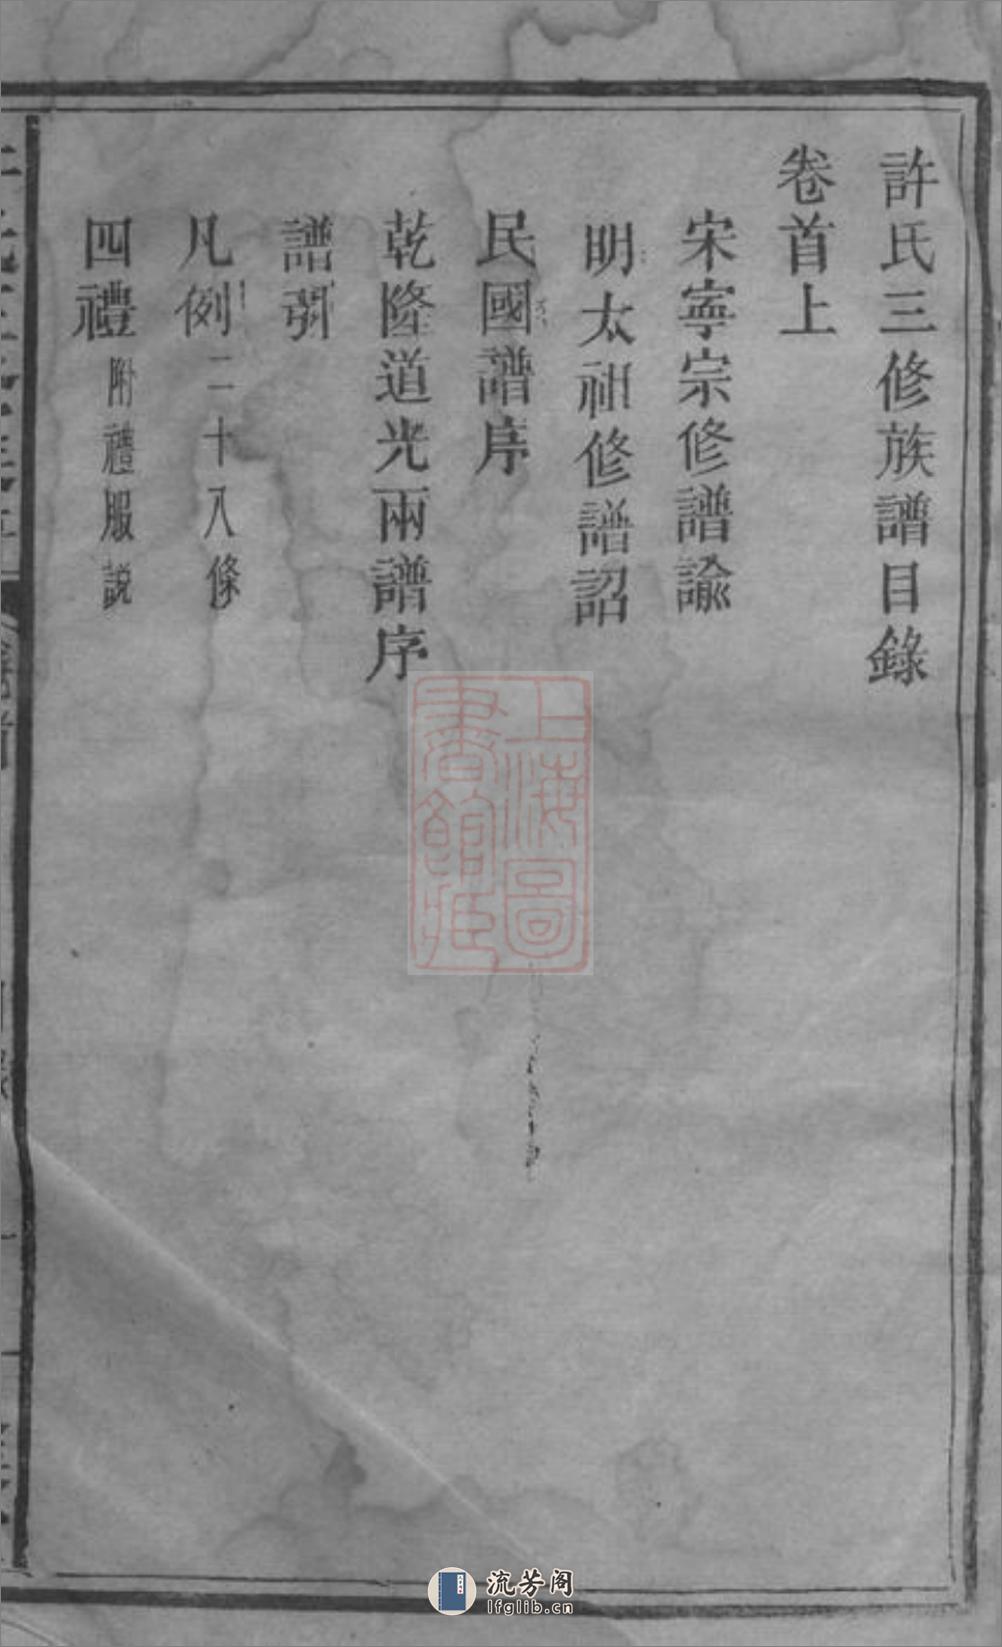 許氏三修族譜目錄
卷首上
宋寧宗修譜諭
明太祖修譜詔
民國譜序
乾隆道光兩譜序
譜引
凡例二十八條
四禮附禮服説
上海圖
書館藏
流芳阁
lfglib.cn